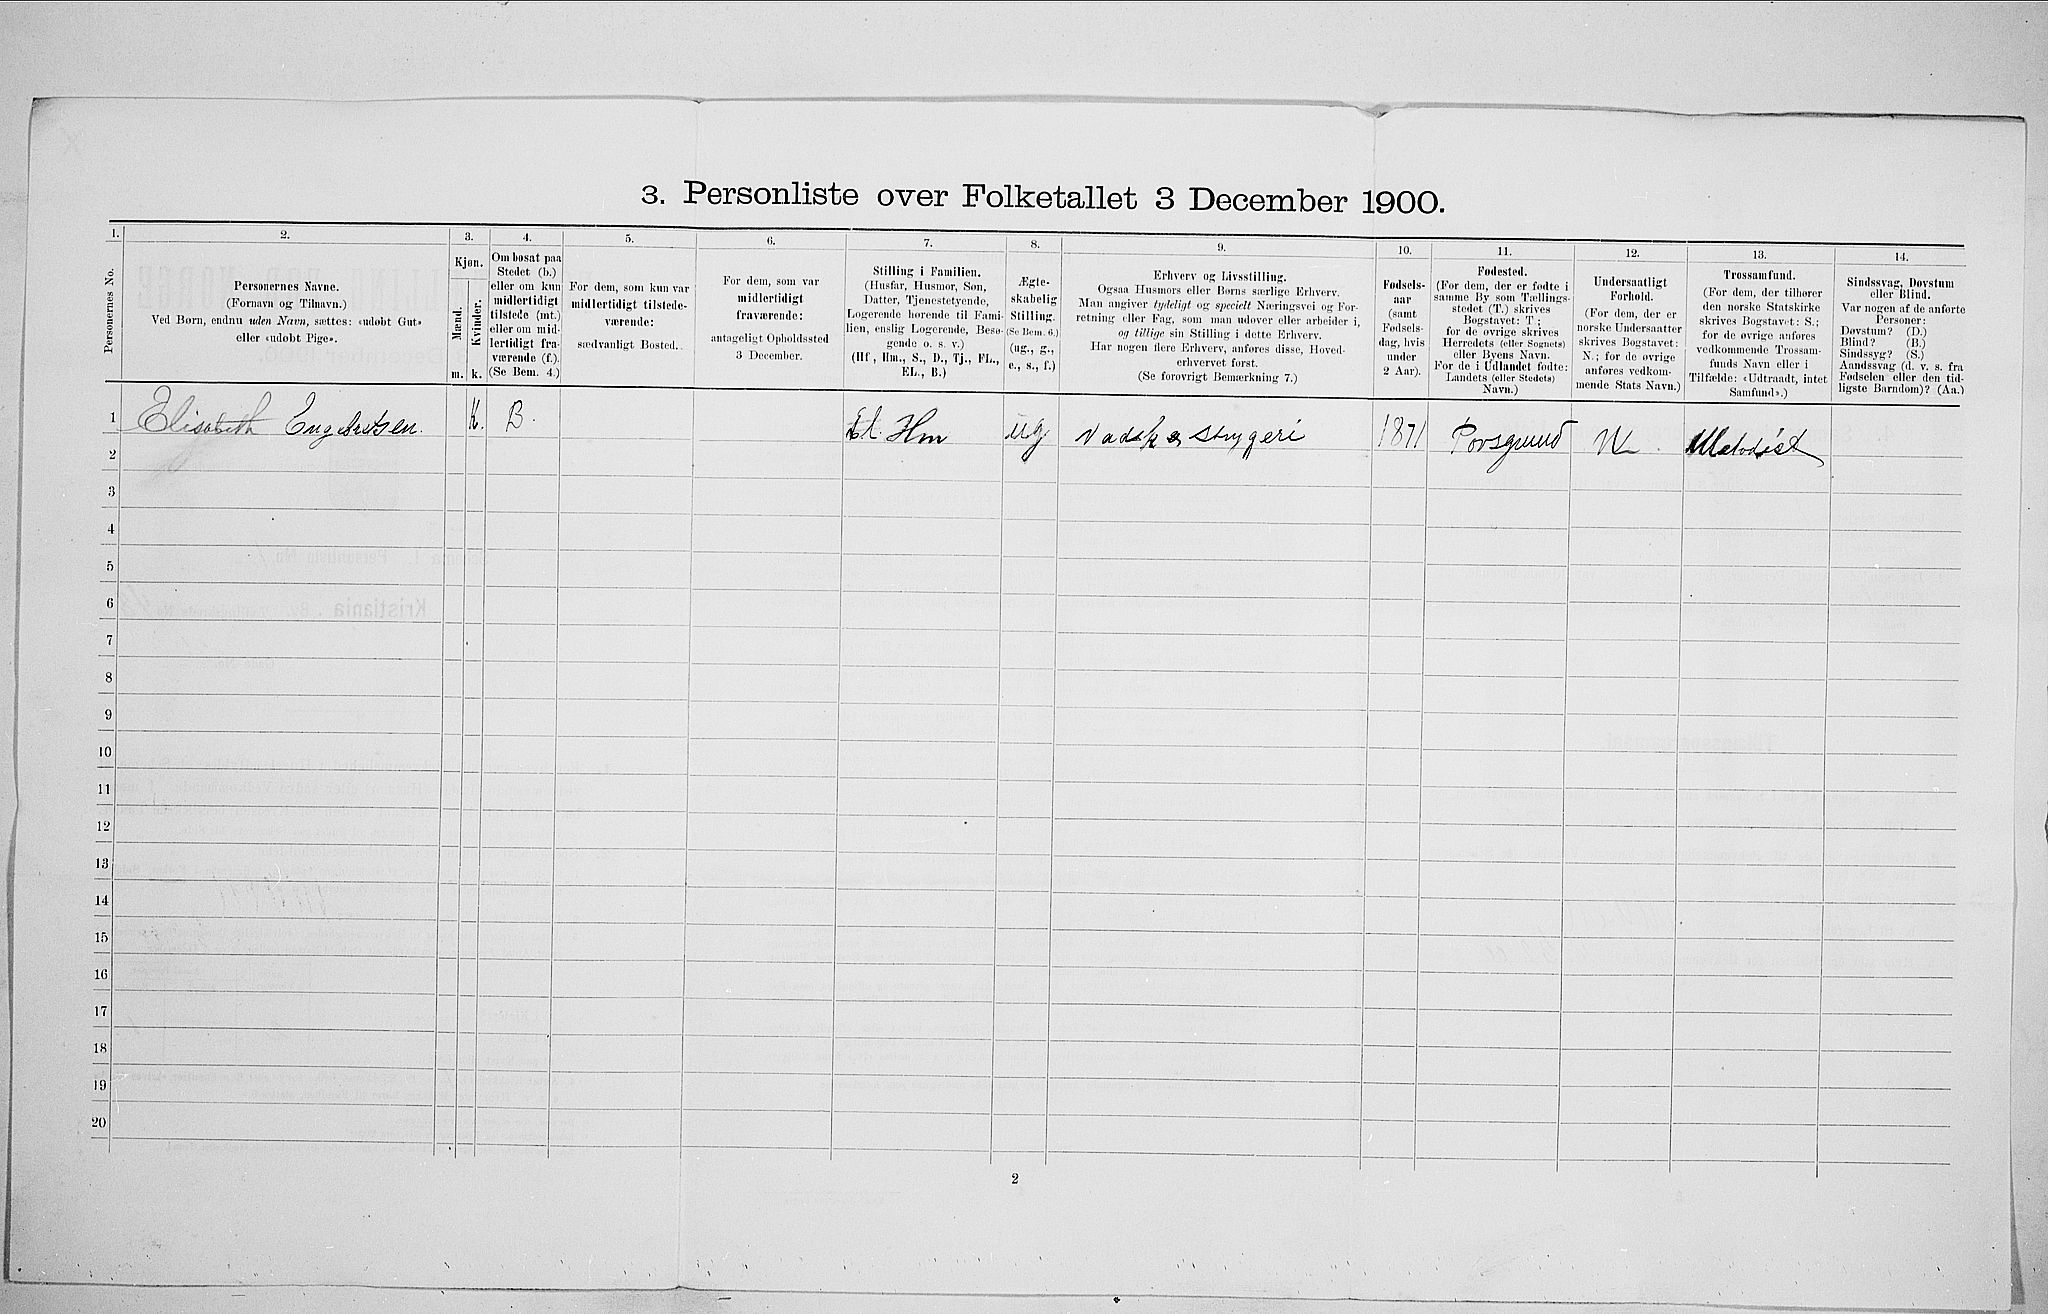 3. Personliste over Folketallet 3 December 1900.
1.
2.
3.
4.
5.
6.
7.
8.
9.
10.
11.
12.
13.
14.
Personernes No.
Personernes Navne.
(Fornavn og Tilnavn.)
Ved Børn, endnu uden Navn, sættes: «udøbt Gut»
eller «udøbt Pige».
Kjøn.
Mænd.
Kvinder.
m.
k.
Om bosat paa
Stedet (b.)
eller om kun
midlertidigt
tilstede (mt.)
eller om mid-
lertidigt fra-
værende (f.).
(Se Bem. 4.)
For dem, som kun var
midlertidigt tilstede-
værende:
sædvanligt Bosted.
For dem, som var
midlertidigt
fraværende:
antageligt Opholdssted
3 December.
Stilling i Familien.
(Husfar, Husmor, Søn,
Datter, Tjenestetyende,
Logerende hørende til Fami-
lien, enslig Logerende, Besø-
gende o. s. v.)
(Hf, Hm., S., D., Tj., FL.,
EL., B.)
Ægte-
skabelig
Stilling.
(Se Bem. 6.)
(ug., g.,
e., s., f.)
Erhverv og Livsstilling.
Ogsaa Husmors eller Børns særlige Erhverv.
Man angiver tydeligt og specielt Næringsvei og For-
retning eller Fag, som man udøver eller arbeider i,
og tillige sin Stilling i dette Erhverv.
Har nogen flere Erhverv, anføres disse, Hoved-
erhvervet først.
(Se forøvrigt Bemærkning 7.)
Fødsels-
aar
(samt
Fødsels-
dag, hvis
under
2 Aar).
Fødested.
(For dem, der er fødte i
samme By som Tællings-
stedet (T.) skrives
Bogstavet: T;
for de øvrige skrives
Herredets (eller Sognets)
eller Byens Navn.
For de i Udlandet fødte:
Landets (eller Stedets)
Navn.)
Undersaatligt
Forhold.
(For dem, der er
norske Undersaatter
skrives Bogstavet:
N.; for de øvrige
anføres vedkom-
mende Stats Navn.)
Trossamfund.
(For dem, der tilhører
den norske Statskirke
skrives Bogstavet: S.;
for de øvrige anføres
vedkommende Trossam-
funds Navn eller i
Tilfælde: «Udtraadt, intet
Samfund».)
Sindssvag, Døvstum
eller Blind.
Var nogen af de anførte
Personer:
Døvstum? (D.)
Blind? (B.)
Sindssyg? (S.)
Aandssvag (d. v. s. fra
Fødselen eller den tid-
ligste Barndom)? (Aa.)
1 Elisabeth Engebretsen. K. B. El. Hm ug Vadsk og Strygeri 1871 Porsgrund N. Metodist
2
3
4
5
6
7
8
9
10
11
12
13
14
15
16
17
18
19
20
2